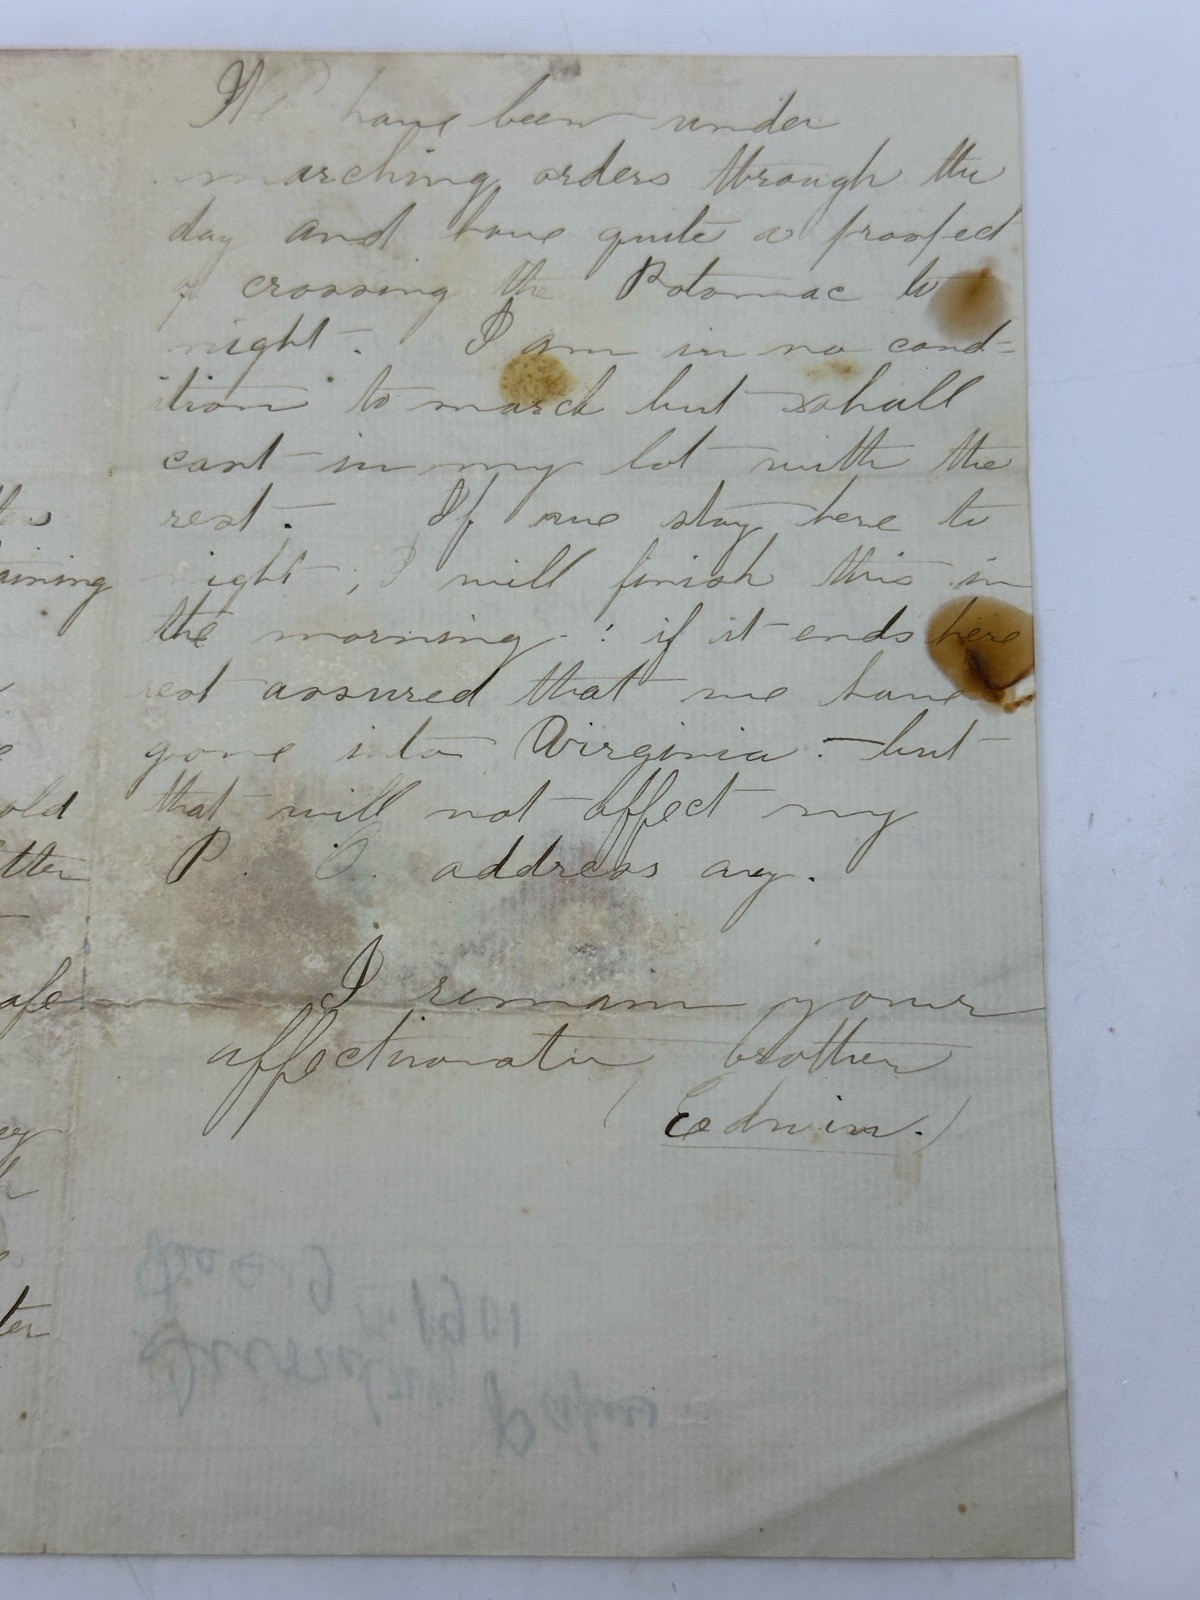 We have been under
marching orders through the
day and have quite a prospect
of crossing the Potomac to
night. I am in no cond=
ition to march but shall
cast in my lot with the
rest. If we stay here to
night; I will finish this in
the morning -: if it ends here
rest assured that we have
gone into Virginia :- but
that will not affect my
P. O. address any.
I remain your
affectionate brother
(Edwin.)
ters
aining
old
tter
afe
ey
ter